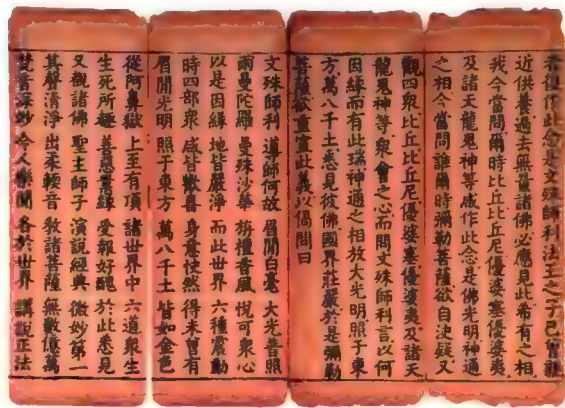 者復作此念是文殊師利法王之子已曾親
近供養過去無量諸佛必應見此希有之相
我今當問爾時比丘比丘尼優婆塞優婆夷
及諸天龍鬼神等咸作此念是佛光明神通
之相今當問誰爾時彌勒菩薩欲自決疑又
觀四衆比丘比丘尼優婆塞優婆夷及諸天
龍鬼神等衆會之心而問文殊師利言以何
因緣而有此瑞神通之相放大光明照于東
方萬八千土悉見彼佛國界莊嚴於是彌勒
菩薩欲重宣此義以偈問曰
文殊師利 導師何故 眉間白毫 大光普照
雨曼陀羅 曼殊沙華 栴檀香風 悅可衆心
以是因緣 地皆嚴淨 而此世界 六種震動
時四部衆 咸皆歡喜 身意快然 得未曾有
眉間光明 照于東方 萬八千土 皆如金色
從阿鼻獄 上至有頂 諸世界中 六道衆生
生死所趣 善惡業緣 受報好醜 於此悉見
又覩諸佛 聖主師子 演說經典 微妙第一
其聲清淨 出柔輭音 教諸菩薩 無數億萬
梵音深妙 令人樂聞 各於世界 講說正法